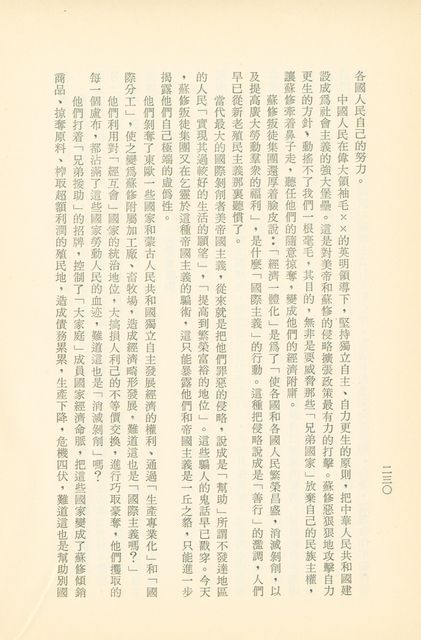 二三〇
各國人民自己的努力。
中國人民在偉大領袖毛××的英明領導下，堅持獨立自主、自力更生的原則，把中華人民共和國建
設成爲社會主義的強大堡壘。這是對美帝和蘇修的侵略擴張政策最有力的打擊。蘇修惡狠狠地攻擊自力
更生的方針，動搖不了我們一根毫毛，其目的，無非是要威脅那些「兄弟國家」放棄自己的民族主權，
讓蘇修牽着鼻子走，聽任他們的隨意掠奪，變成他們的經濟附庸。
蘇修叛徒集團還厚着臉皮說：「經濟一體化」是爲了「使各國和各國人民繁榮昌盛，消滅剝削，以
及提高廣大勞動羣衆的福利」，是什麼「國際主義」的行動。這種把侵略說成是「善行」的濫調，人們
早已從新老殖民主義那裏聽慣了。
當代最大的國際剝削者美帝國主義，從來就是把他們罪惡的侵略，說成是「幫助」所謂不發達地區
的人民「實現其過較好的生活的願望」，「提高到繁榮富裕的地位」。這些騙人的鬼話早已戳穿。今天
，蘇修叛徒集團又在乞靈於這種帝國主義的騙術，這只能暴露他們和帝國主義是一丘之貉，只能進一步
揭露他們自己極端的虛僞性。
他們剝奪了東歐一些國家和蒙古人民共和國獨立自主發展經濟的權利、通過「生產專業化」和「國
際分工」，使之變爲蘇修附屬加工廠、畜牧場，造成經濟畸形發展，難道這也是「國際主義嗎？」
他們利用對「經互會」國家的統治地位，大搞損人利己的不等價交換，進行巧取豪奪，他們攫取的
每一個盧布，都沾滿了這些國家勞動人民的血迹，難道這也是「消滅剝削」嗎？
他們打着「兄弟援助」的招牌，控制了「大家庭」成員國家經濟命脈，把這些國家變成了蘇修傾銷
商品、掠奪原料、榨取超額利潤的殖民地，造成債務累累，生產下降，危機四伏，難道這也是幫助別國